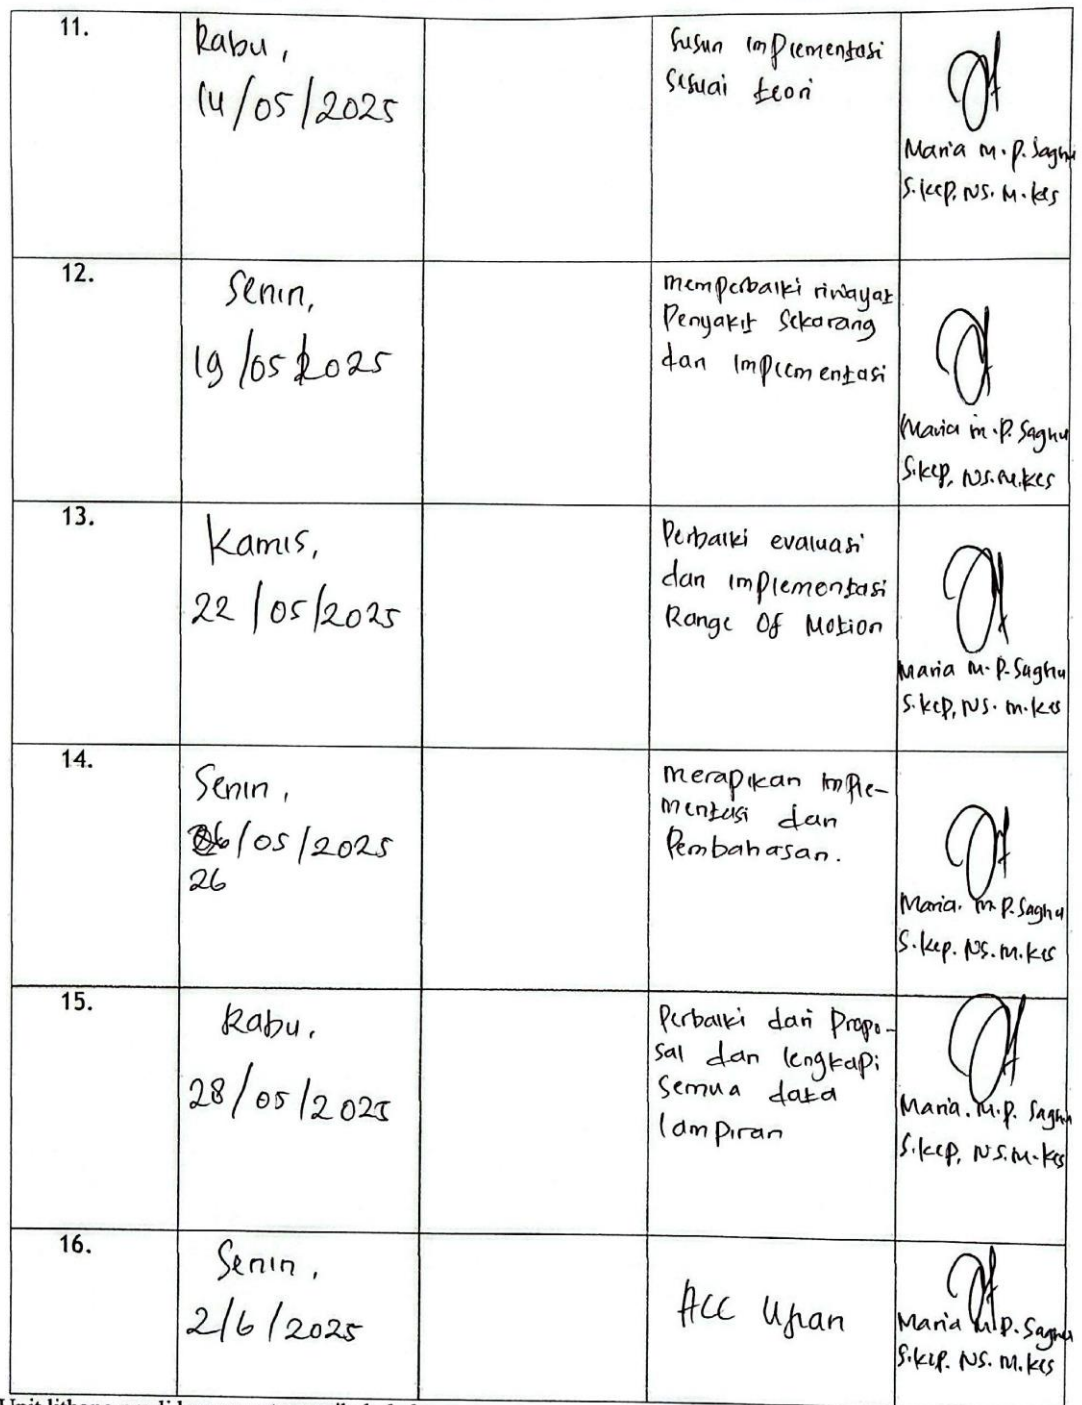 11.
Rabu,
14/05/2025
Susun implementasi
sesuai teori
Maria M.P. Saghu
S.kep, NS. M.kes
12.
Senin,
19/05/2025
memperbaiki riwayat
Penyakit Sekarang
dan Implementasi
Maria M.P. Saghu
S.kep, NS. M.kes
13.
Kamis,
22/05/2025
Perbaiki evaluasi
dan implementasi
Range Of Motion
Maria M.P. Saghu
S.kep, NS. M.kes
14.
Senin,
26/05/2025
26
merapikan Imple-
mentasi dan
Pembahasan.
Maria. M.P. Saghu
S.kep. NS. M.kes
15.
Rabu.
28/05/2025
Perbaiki dari Propo-
sal dan lengkapi
semua data
lampiran
Maria. M.P. Saghu
S.kep, NS. M.kes
16.
Senin,
2/6/2025
ACC Ujian
Maria M.P. Saghu
S.kep. NS. M.kes